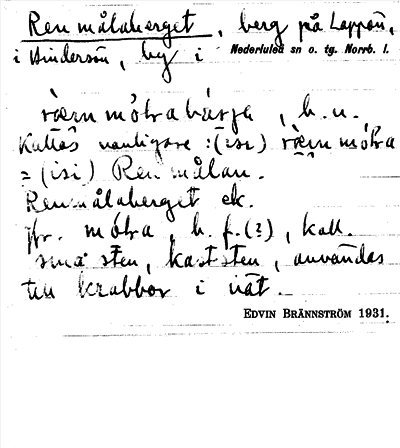 Renmålaberget, berg på Lappön,
i Hindersön, by i Nederluleå sn o. tg. Norrb. l.
b. n.
Kallas vanligare : (isi)
= (isi) Renmålan.
Renmålaberget ek.
jfr. b. f. (?), koll.
små sten, kaststen, användas
till krabbor i nät.
EDVIN BRÄNNSTRÖM 1931.